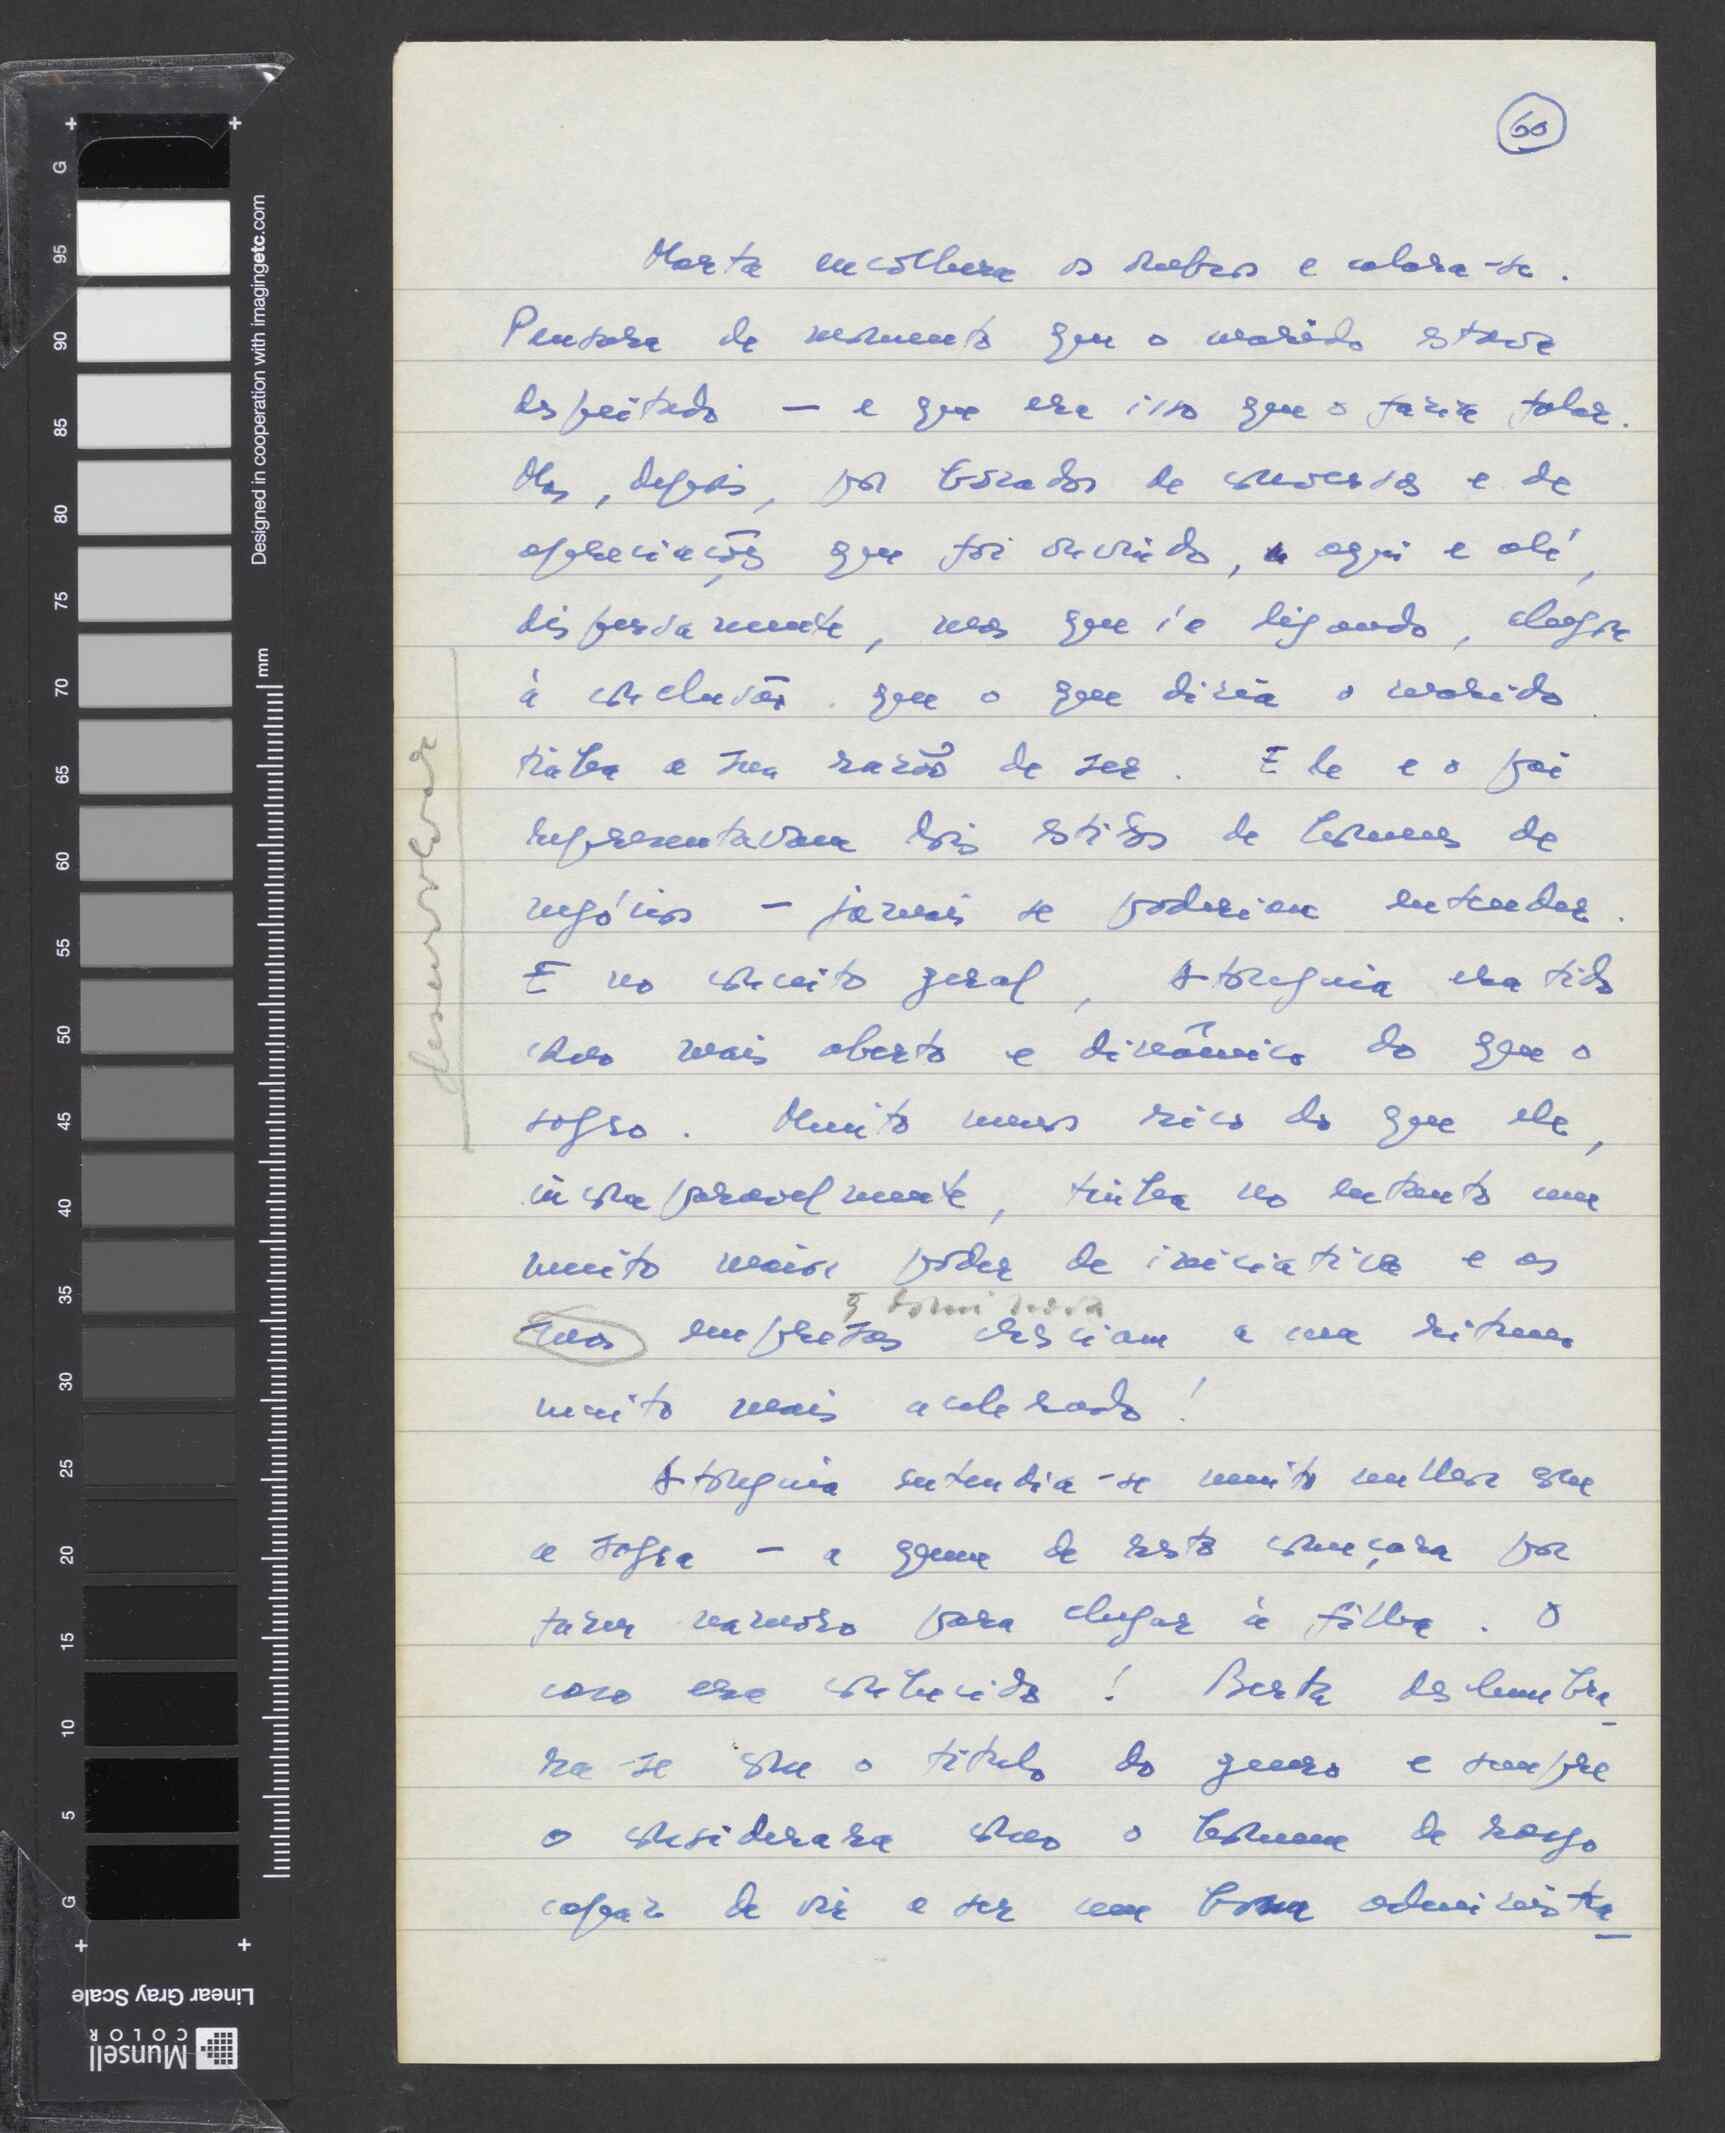 60
Marta encolhera os ombros e calara-se.
Pensara de momento que o marido estava
despeitado — e que era isso que o faria falar.
Mas, depois, por bocados de conversas e de
apreciações que foi ouvindo, aqui e ali,
dispersamente, mas que ia ligando, chegou
à conclusão que o que dizia o marido
tinha a sua razão de ser. Ele e o pai
representavam dois estilos de homens de
negócios — jamais se poderiam entender.
E no conceito geral, Atouguia era tido
como mais aberto e dinâmico do que o
sogro. Muito menos rico do que ele,
incomparavelmente, tinha no entanto um
muito maior poder de iniciativa e as
suas empresas cresciam a um ritmo
q dominava
muito mais acelerado!
Atouguia entendia-se muito melhor com
a sogra — a quem de resto começara por
fazer namoro para chegar à filha. O
caso era conhecido! Berta deslumbra
ra-se com o título do genro e sempre
o considerara como o homem de rasgo
capaz de vir a ser um bom administra
desenvolver
Designed in cooperation with imagingetc.com
mm
G 95 90 85 80 75 70 65 60 55 50 45 40 35 30 25 20 15 10 5 G
Linear Gray Scale
Munsell
COLOR